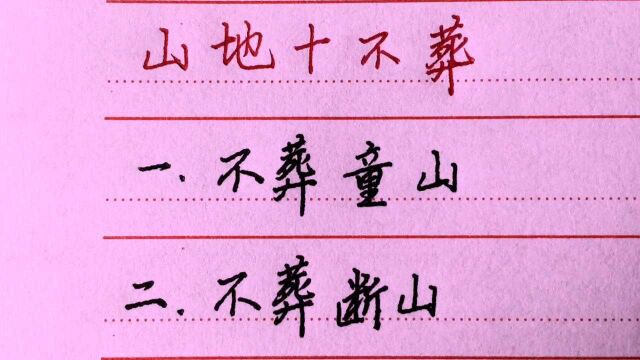 山地十不葬
一.不葬童山
二.不葬断山